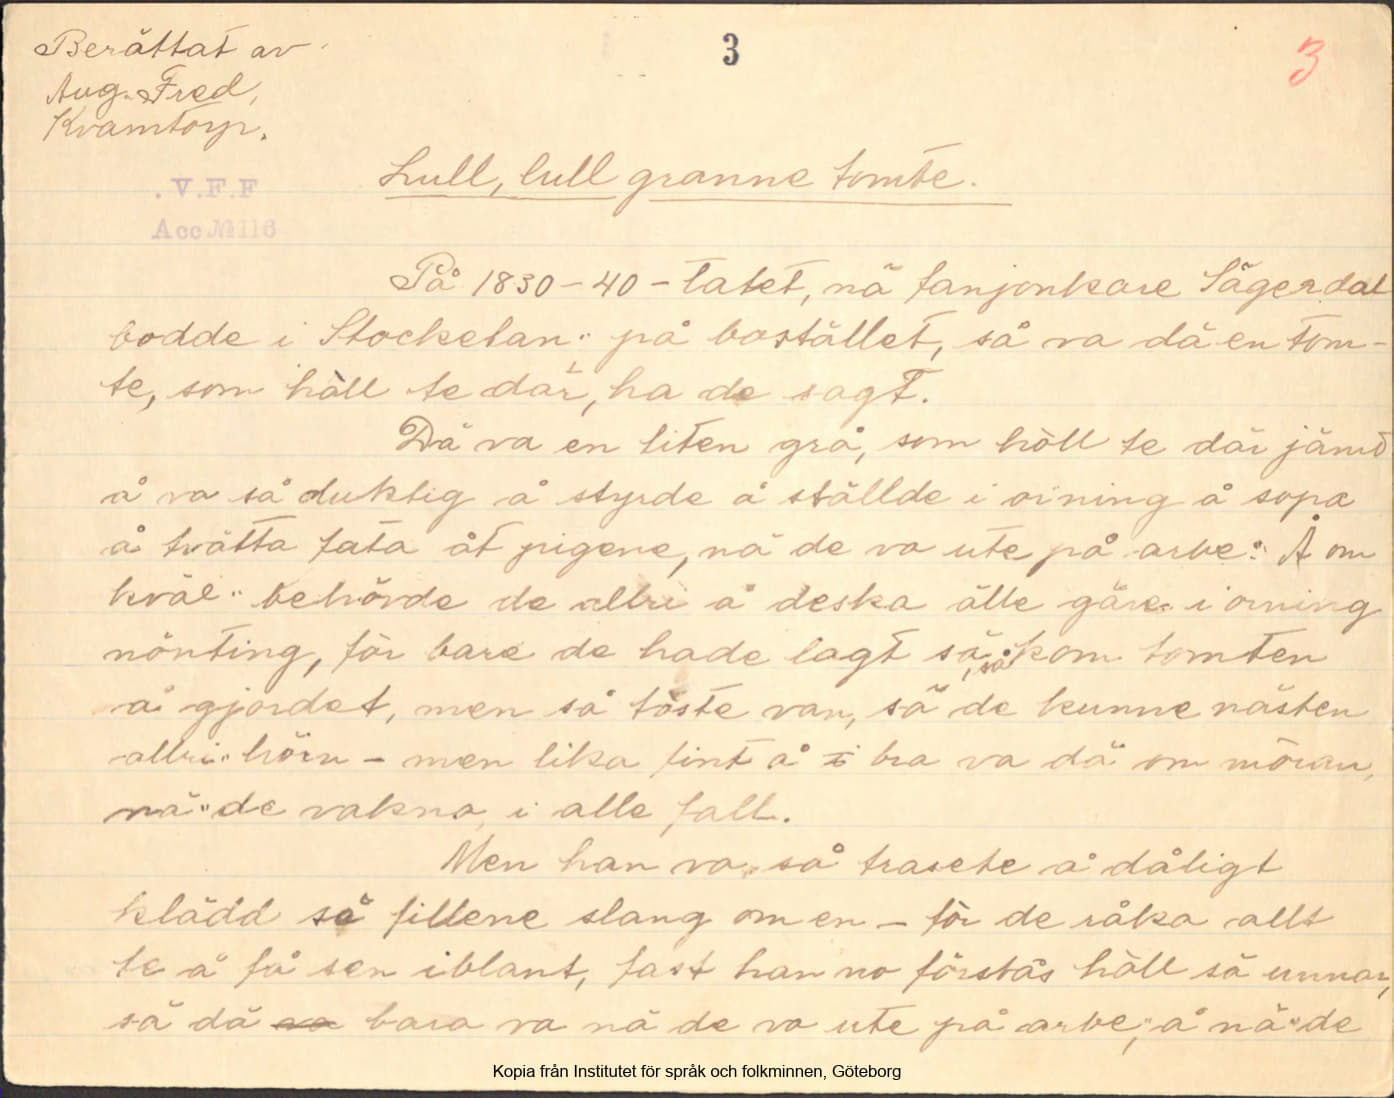 Berättat av
Aug. Fred,
Kvarntorp.
3
3
.V.F.F
Acc № 116
Lull, lull granne tomte.
På 1830-40-talet, nä fanjonkare Sägerdal
bodde i Stockelan" på bostället, så va dä en tom-
te, som höll te där, ha de sagt.
Dä va en liten grå, som höll te där jämt
å va så duktig å styrde å ställde i orning å sopa
å tvätta fata åt pigene, nä de va ute på arbe". Å om
kväl" behövde de allri å deska älle göre i orning
nönting, för bare de hade lagt sä, så kom tomten
å gjordet, men så töste van, så de kunne nästen
allri" hörn - men lika fint å bra va dä om möran,
nä" de vakna, i alle fall.
Men han va så trasete å dåligt
klädd så fillene slang om en - för de råka allt
te å få sen iblant, fast han no förstås höll sä unnan,
så dä bara va nä de va ute på arbe", å nä" de
Kopia från Institutet för språk och folkminnen, Göteborg